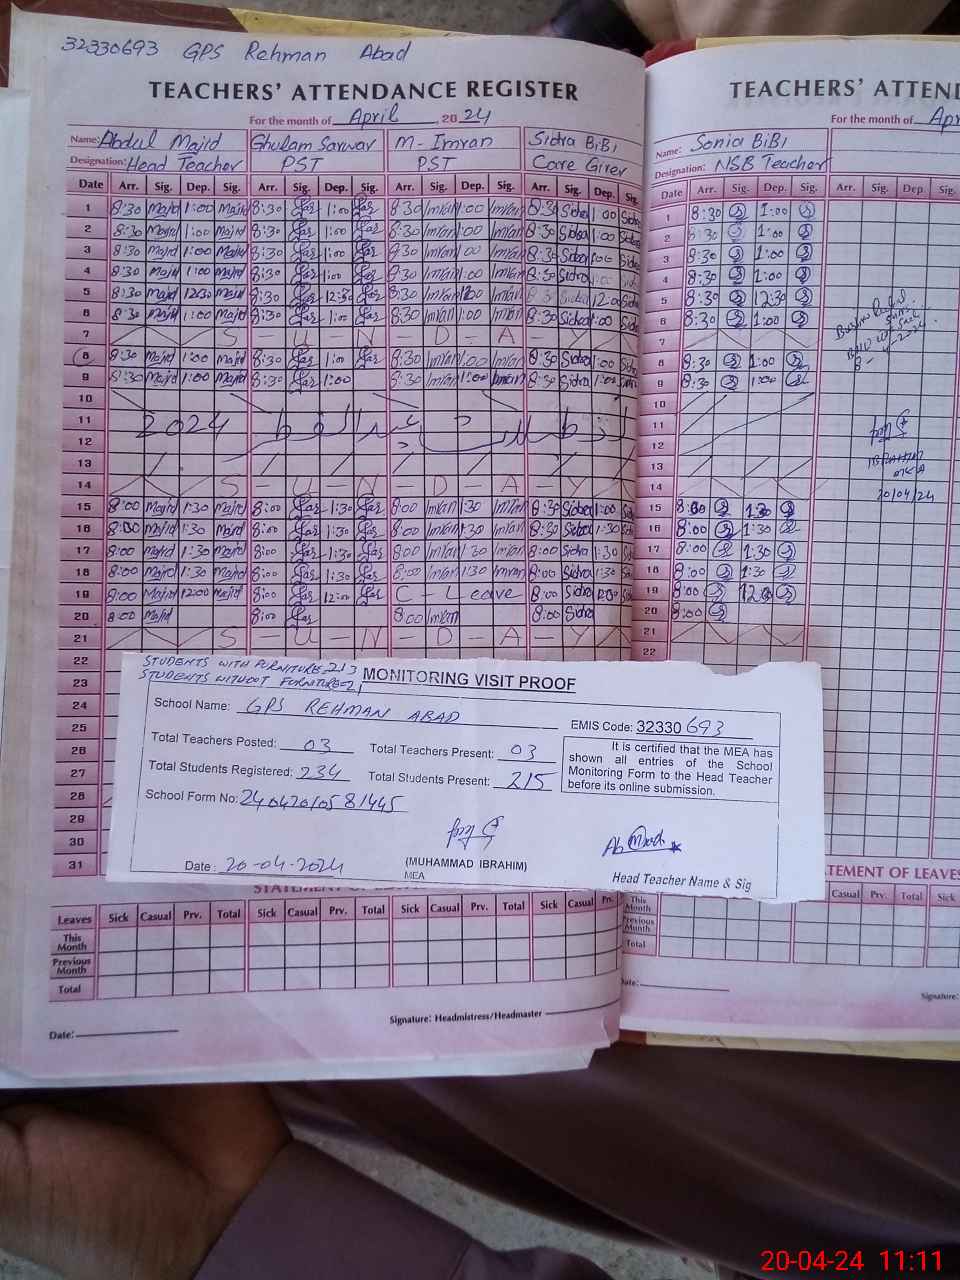 32330693 GPS Rehman Abad
TEACHERS' ATTENDANCE REGISTER
For the month of April, 2024
Name: Abdul Majid Ghulam Sarwar M-Imran Sidra BiBi
Designation: Head Teacher PST PST Care Giver
Date Arr. Sig. Dep. Sig. Arr. Sig. Dep. Sig. Arr. Sig. Dep. Sig. Arr. Sig. Dep. Sig.
1 8:30 Majid 1:00 Majid 8:30 1:00 8:30 Imran 1:00 Imran 8:30 Sidra 1:00 Sidra
2 8:30 Majid 1:00 Majid 8:30 1:00 8:30 Imran 1:00 Imran 8:30 Sidra 1:00 Sidra
3 8:30 Majid 1:00 Majid 8:30 1:00 8:30 Imran 1:00 Imran 8:30 Sidra 1:00 Sidra
4 8:30 Majid 1:00 Majid 8:30 1:00 8:30 Imran 1:00 Imran 8:30 Sidra 1:00 Sidra
5 8:30 Majid 12:30 Majid 8:30 12:30 8:30 Imran Imran 8:30 Sidra 12:00 Sidra
6 8:30 Majid 1:00 Majid 8:30 1:00 8:30 Imran 1:00 Imran 8:30 Sidra 1:00 Sidra
7 S - U - N - D - A - Y
8 8:30 Majid 1:00 Majid 8:30 1:00 8:30 Imran 1:00 Imran 8:30 Sidra 1:00 Sidra
9 8:30 Majid 1:00 Majid 8:30 1:00 8:30 Imran 1:00 Imran 8:30 Sidra 1:00 Sidra
10
11 2024 عید الفطر تعطیلات
12
13
14 S - U - N - D - A - Y
15 8:00 Majid 1:30 Majid 8:00 1:30 8:00 Imran 1:30 Imran 8:30 Sidra 1:00 Sidra
16 8:00 Majid 1:30 Majid 8:00 1:30 8:00 Imran 1:30 Imran 8:30 Sidra 1:30 Sidra
17 8:00 Majid 1:30 Majid 8:00 1:30 8:00 Imran 1:30 Imran 8:00 Sidra 1:30 Sidra
18 8:00 Majid 1:30 Majid 8:00 1:30 8:00 Imran 1:30 Imran 8:00 Sidra 1:30 Sidra
19 8:00 Majid 12:00 Majid 8:00 12:00 C - Leave 8:00 Sidra 12:00 Sidra
20 8:00 Majid 8:00 8:00 Imran 8:00 Sidra
21 S - U - N - D - A - Y
22
23
24
25
26
27
28
29
30
31
STUDENTS WITH FURNITURE 213
STUDENTS WITHOUT FURNITURE=21
MONITORING VISIT PROOF
School Name: GPS REHMAN ABAD
EMIS Code: 32330693
Total Teachers Posted: 03 Total Teachers Present: 03
Total Students Registered: 234 Total Students Present: 215
It is certified that the MEA has shown all entries of the School Monitoring Form to the Head Teacher before its online submission.
School Form No: 2404201058 1445
Date: 20-04-2024
(MUHAMMAD IBRAHIM)
MEA
Head Teacher Name & Sig
Leaves Sick Casual Prv. Total Sick Casual Prv. Total Sick Casual Prv. Total Sick Casual Prv.
This Month
Previous Month
Total
Date:
Signature: Headmistress/Headmaster
TEACHERS' ATTEN
For the month of Apr
Name: Sonia BiBi
Designation: NSB Teacher
Date Arr. Sig. Dep. Sig. Arr. Sig. Dep. S
1 8:30 1:00
2 8:30 1:00
3 8:30 1:00
4 8:30 1:00
5 8:30 12:30
6 8:30 1:00
7
8 8:30 1:00
9 8:30 1:00
10
11
12
13
14
15 8:00 1:30
16 8:00 1:30
17 8:00 1:30
18 8:00 1:30
19 8:00 12:00
20 8:00
21
22
IBRAHIM
20/04/24
TATEMENT OF LEAVES
Casual Prv. Total Sick
This Month
Previous Month
Total
Date:
Signature:
20-04-24 11:11